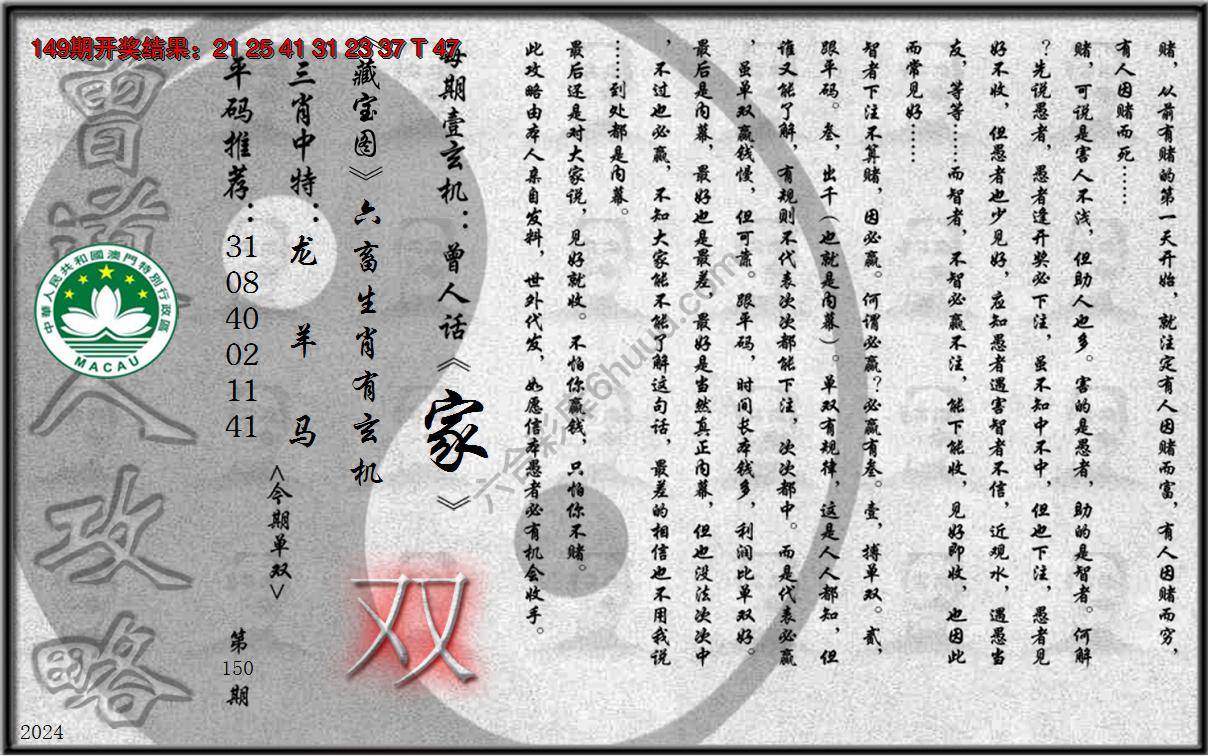 149期开奖结果：21 25 41 31 23 37 T 47
赌，从前有赌的第一天开始，就注定有人因赌而富，有人因赌而穷，
有人因赌而死……
赌，可说是害人不浅，但助人也多。害的是愚者，助的是智者。何解
？先说愚者，愚者逢开奖必下注，虽不知中不中，但也下注，愚者见
好不收，但愚者也少见好，应知愚者遇害智者不信，近观水，遇愚当
友，等等……而智者，不智必赢不注，能下能收，见好即收，也因此
而常见好……
智者下注不算赌，因必赢。何谓必赢？必赢有叁。壹，搏单双。贰，
跟平码。叁，出千（也就是内幕）。单双有规律，这是人人都知，但
谁又能了解，有规则不代表次次都能下注，次次都中。而是代表必赢
，虽单双赢钱慢，但可靠。跟平码，时间长本钱多，利润比单双好。
最后是内幕，最好也是最差，最好是当然真正内幕，但也没法次次中
，不过也必赢，不知大家能不能了解这句话，最差的相信也不用我说
……到处都是内幕。
最后还是对大家说，见好就收。不怕你赢钱，只怕你不赌。
此攻略由本人亲自发料，世外代发，如愿信本愚者必有机会收手。
每期壹玄机：曾人话《家》
《藏宝图》六畜生肖有玄机
双
三肖中特：龙 羊 马
<今期单双>
平码推荐：
31
08
40
02
11
41
第
150
期
曾道人攻略
中華人民共和國澳門特別行政區
MACAU
六合彩库6huuu.com
2024